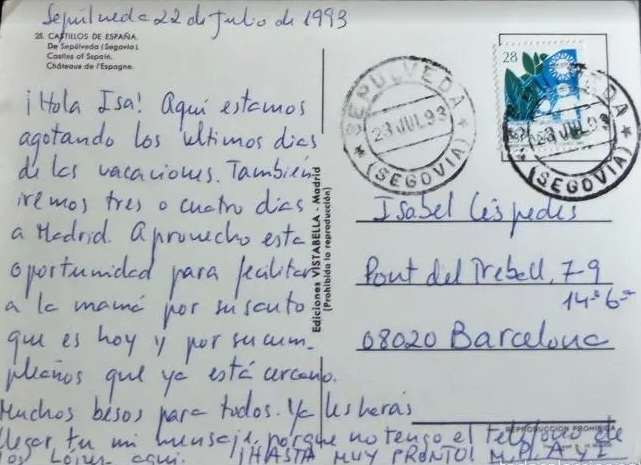 Sepúlveda 22 de Julio de 1993
28. CASTILLOS DE ESPAÑA.
De Sepúlveda (Segovia).
Castles of Spain.
Châteaux de l'Espagne.
¡Hola Isa! Aquí estamos
agotando los ultimos dias
de las vacaciones. También
iremos tres o cuatro dias
a Madrid. Aprovecho esta
oportunidad para felicitar
a la mamá por su santo
que es hoy y por su cum-
pleaños que ya está cercano.
Muchos besos para todos. Ya les harás
llegar tu mi mensaje, porque no tengo el teléfono de
los López aquí. ¡HASTA MUY PRONTO! M.P.A y I
Ediciones VISTABELLA - Madrid
(Prohibida la reproducción)
SEPULVEDA
23 JUL 93
(SEGOVIA)
28
SEPULVEDA
23 JUL 93
(SEGOVIA)
Isabel Céspedes
Pont del Treball, 7-9
14º 6ª
08020 Barcelona
REPRODUCCION PROHIBIDA